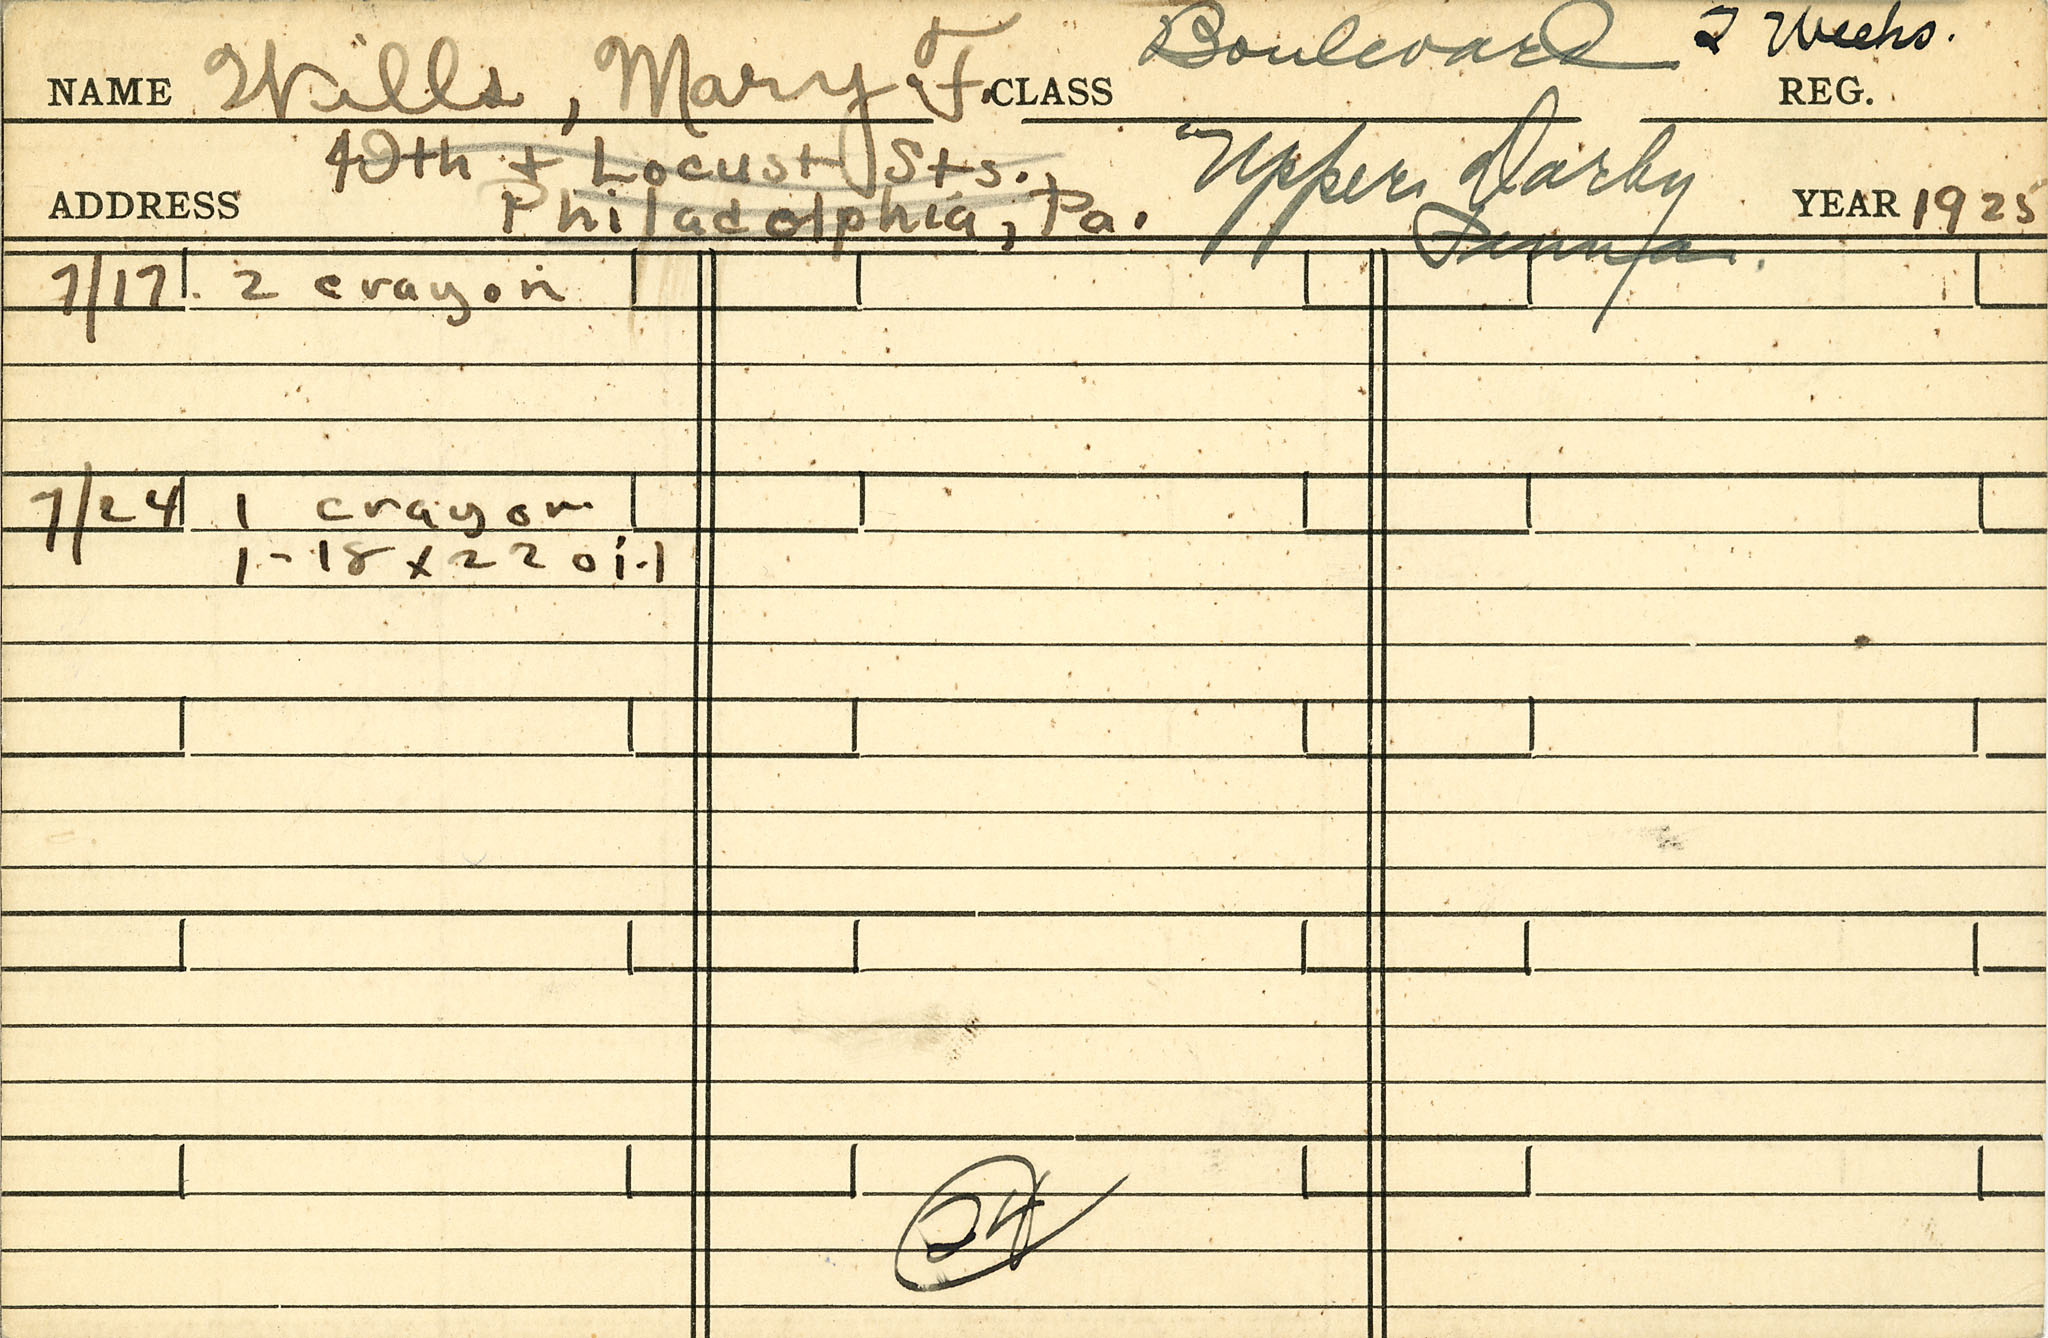 NAME Wills, Mary F. CLASS Boulevard REG. 2 Weeks.
ADDRESS 40th + Locust Sts. Upper Darby
Philadelphia, Pa. Penn'a. YEAR 1925
7/17 2 crayon
7/24 1 crayon
1-18x22 oil
24